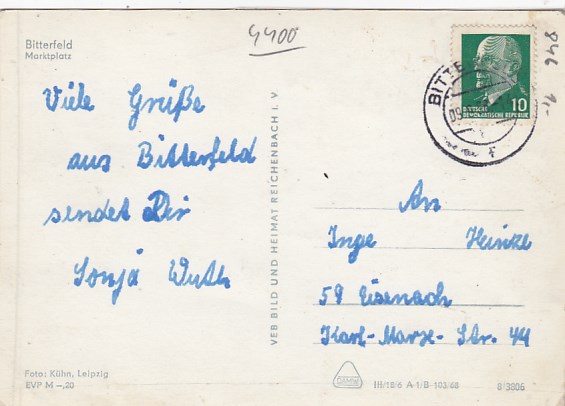 Bitterfeld
Marktplatz
4400
846 1,-
Viele Grüße
aus Bitterfeld
sendet Dir
Sonja Wuth
Foto: Kühn, Leipzig
EVP M –,20
VEB BILD UND HEIMAT REICHENBACH I. V
BITTE
09
10
DEUTSCHE
DEMOKRATISCHE REPUBLIK
An
Inge Heinze
59 Eisenach
Karl-Marx-Str. 44
III/18/6 A-1/B 103/68 8/3806